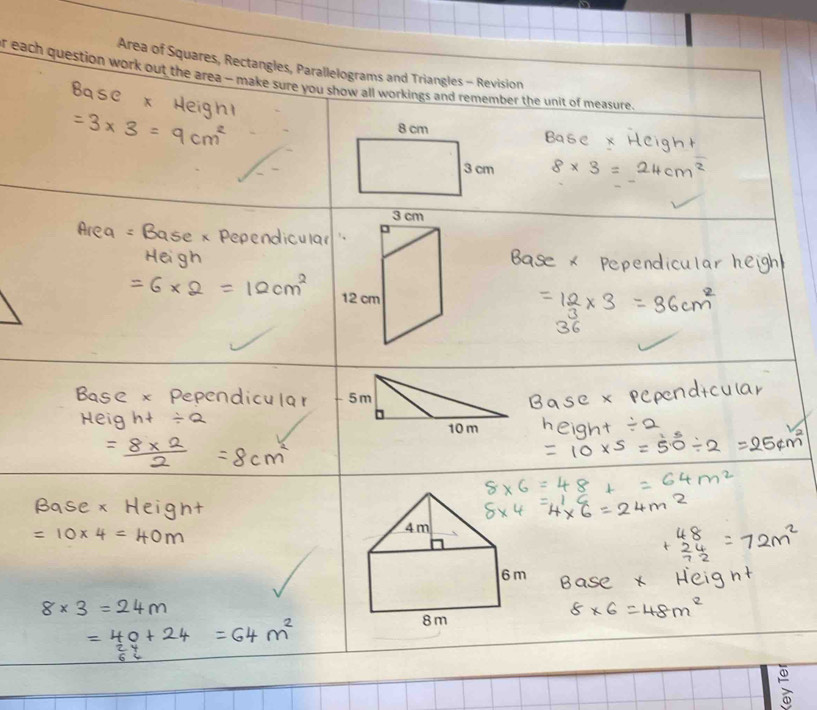 Area of Squares, Rectangles, Parallelograms and Triangles – Revision
r each question work out the area – make sure you show all workings and remember the unit of measure.
Base × Height
= 3 × 3 = 9cm²
8 cm
3 cm
Base × Height
8 × 3 = 24cm²
Area = Base × Pependicular
Heigh
= 6 × 2 = 12cm²
3 cm
12 cm
Base × Pependicular heigh
= 12 × 3 = 36cm²
3
36
Base × Pependicular
Height ÷ 2
= 8 × 2 / 2 = 8cm²
5 m
10 m
Base × Pependicular
height ÷ 2
= 10 × 5 = 50 ÷ 2 = 25cm²
Base × Height
= 10 × 4 = 40m
8 × 3 = 24m
= 40 + 24 = 64m²
24
64
4 m
6 m
8 m
8×6 = 48 + = 64m²
8×4 = 4×6 = 24m²
48
+ 24 = 72m²
72
Base × Height
8 × 6 = 48m²
Key Ter